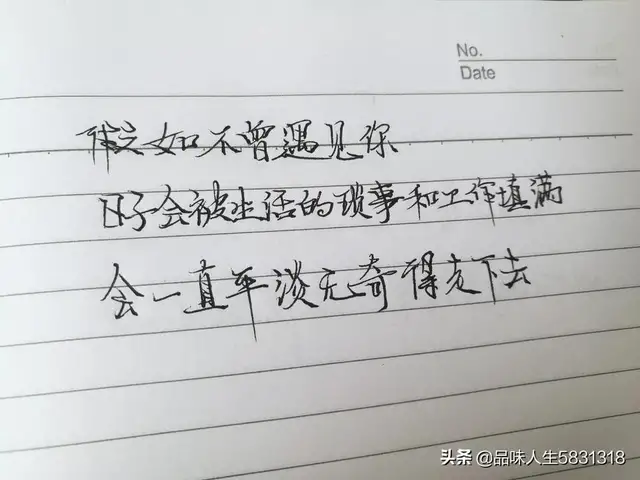 No.
Date
假如不曾遇见你
日子会被生活的琐事和工作填满
会一直平淡无奇得走下去
头条 @品味人生5831318